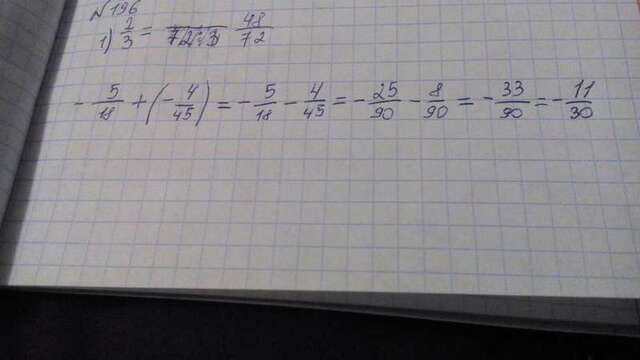 №196
1) 2/3 = 48/72
- 5/18 + (- 4/45) = - 5/18 - 4/45 = - 25/90 - 8/90 = - 33/90 = - 11/30